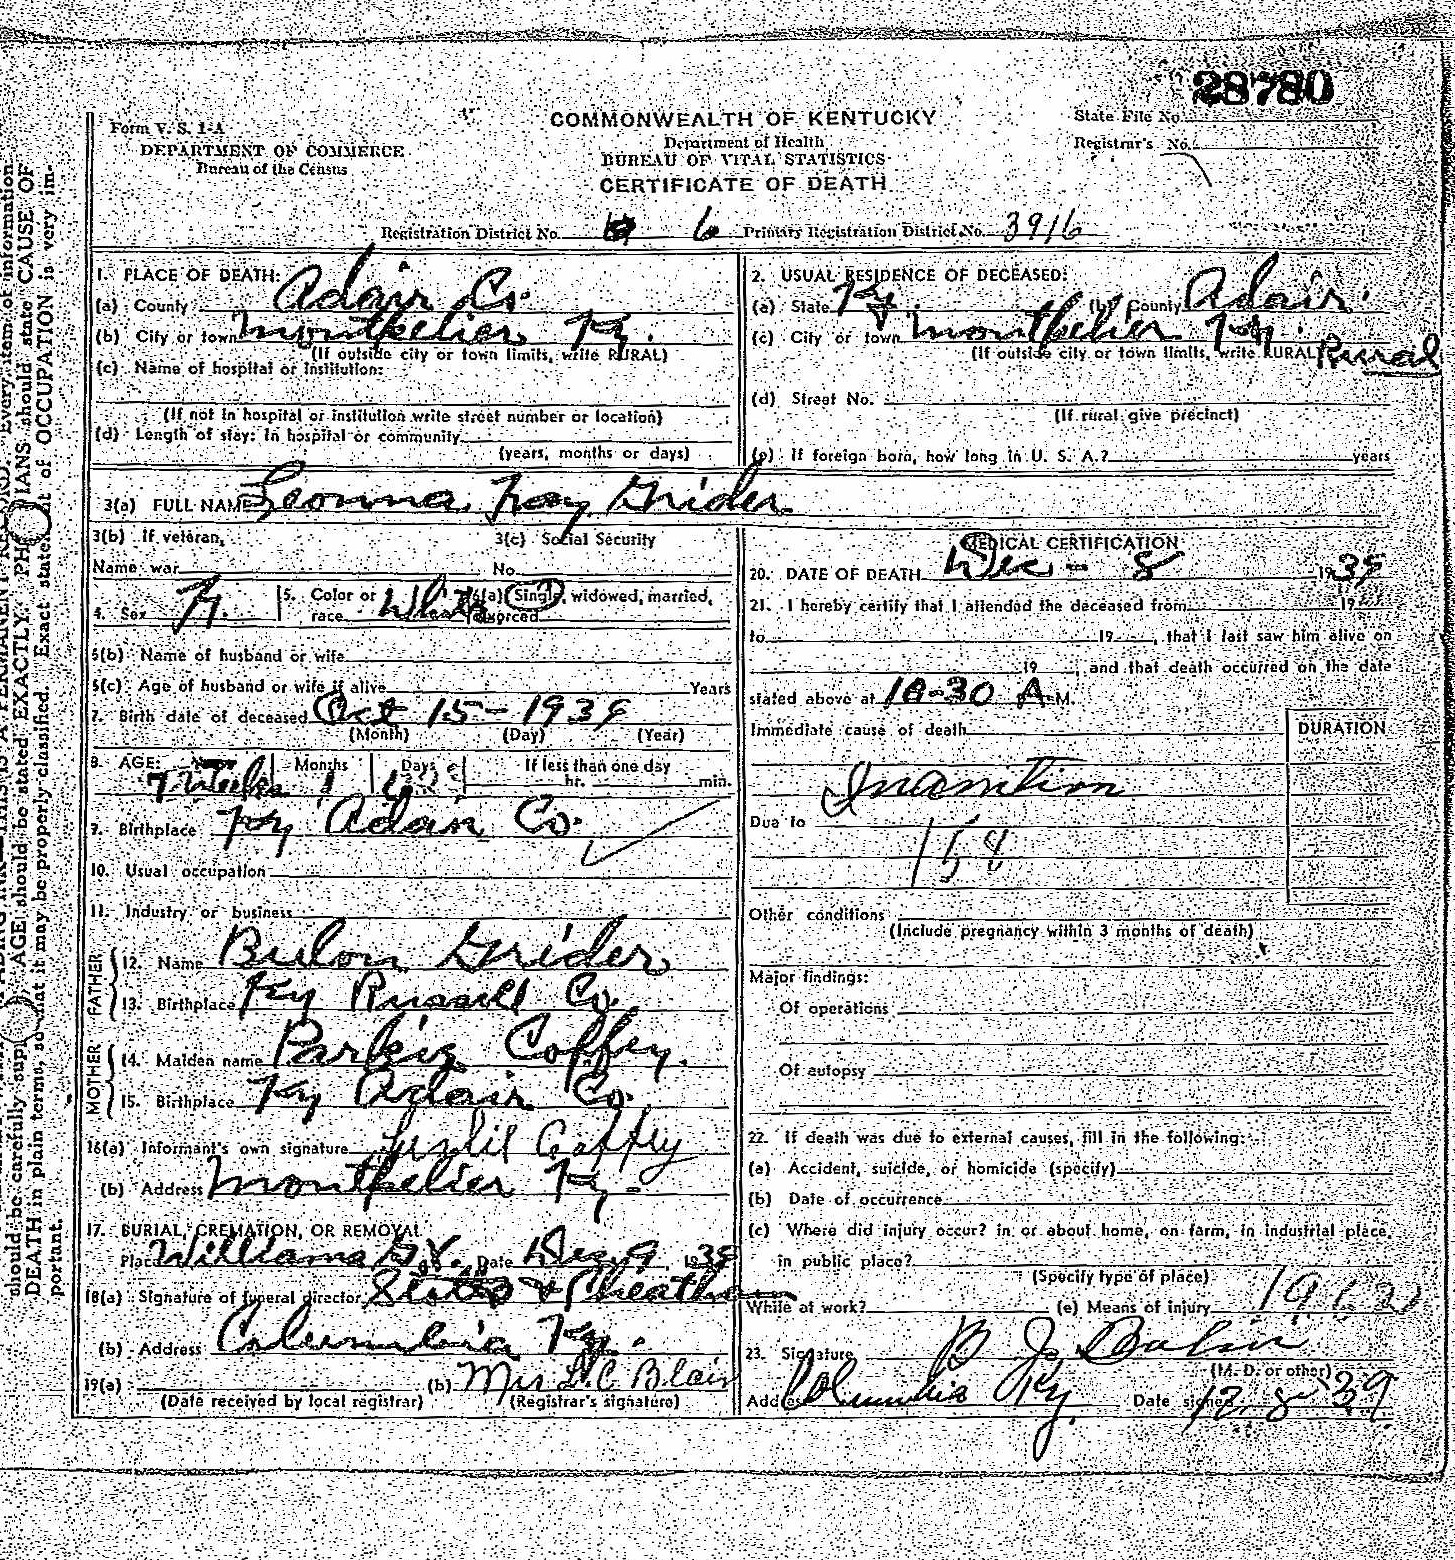 28780
Form V. S. 1-A
DEPARTMENT OF COMMERCE
Bureau of the Census
COMMONWEALTH OF KENTUCKY
Department of Health
BUREAU OF VITAL STATISTICS
CERTIFICATE OF DEATH
State File No.
Registrar's No.
Registration District No. 6 Primary Registration District No. 3916
1. PLACE OF DEATH:
(a) County Adair Co.
(b) City or town Montpelier Ky.
(If outside city or town limits, write RURAL)
(c) Name of hospital or institution:
(If not in hospital or institution write street number or location)
(d) Length of stay: In hospital or community
(years, months or days)
2. USUAL RESIDENCE OF DECEASED:
(a) State Ky (b) County Adair.
(c) City or town Montpelier Ky.
(If outside city or town limits, write RURAL) Rural
(d) Street No.
(If rural give precinct)
(e) If foreign born, how long in U. S. A.? years
3(a) FULL NAME Leonna Fay Grider
3(b) If veteran, 3(c) Social Security
Name war No.
4. Sex F. 5. Color or race White 6(a) Single, widowed, married, divorced
6(b) Name of husband or wife
6(c) Age of husband or wife if alive Years
7. Birth date of deceased Oct 15-1939
(Month) (Day) (Year)
8. AGE: 7 Weeks Months 1 Days If less than one day
hr. min.
9. Birthplace Ky Adair Co.
10. Usual occupation
11. Industry or business
FATHER
12. Name Bulon Grider
13. Birthplace Ky Russell Co.
MOTHER
14. Maiden name Coffey.
15. Birthplace Ky Adair Co.
16(a) Informant's own signature Coffey
(b) Address Montpelier Ky-
17. BURIAL, CREMATION, OR REMOVAL
Place Williams G.Y. Date Dec 9 1939
18(a) Signature of funeral director & Cheatham
(b) Address Columbia Ky.
19(a) (b) Mrs L.C. Blair
(Date received by local registrar) (Registrar's signature)
MEDICAL CERTIFICATION
20. DATE OF DEATH Dec - 8 1939
21. I hereby certify that I attended the deceased from 19
to 19 , that I last saw him alive on
19 , and that death occurred on the date
stated above at 10-30 A M.
Immediate cause of death DURATION
Inanition
Due to
158
Other conditions
(Include pregnancy within 3 months of death)
Major findings:
Of operations
Of autopsy
22. If death was due to external causes, fill in the following:
(a) Accident, suicide, or homicide (specify)
(b) Date of occurrence
(c) Where did injury occur? in or about home, on farm, in industrial place,
in public place?
(Specify type of place)
While at work? (e) Means of injury
23. Signature B J
(M. D. or other)
Address Columbia Ky. Date signed 12-8-39
should be carefully supplied. AGE should be stated EXACTLY. PHYSICIANS should state CAUSE OF
DEATH in plain terms, so that it may be properly classified. Exact statement of OCCUPATION is very im-
portant.